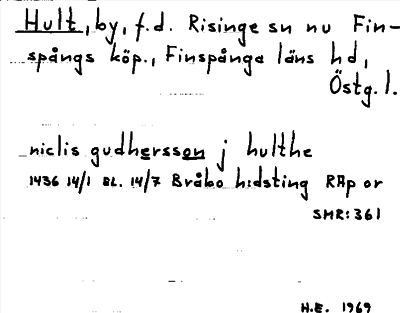 Hult, by, f.d. Risinge sn nu Fin-
spångs köp., Finspånga läns hd,
Östg. l.
niclis gudhersson j hulthe
1436 14/1 el. 14/7 Bråbo hdsting RAp or
SMR:361
H.E. 1969